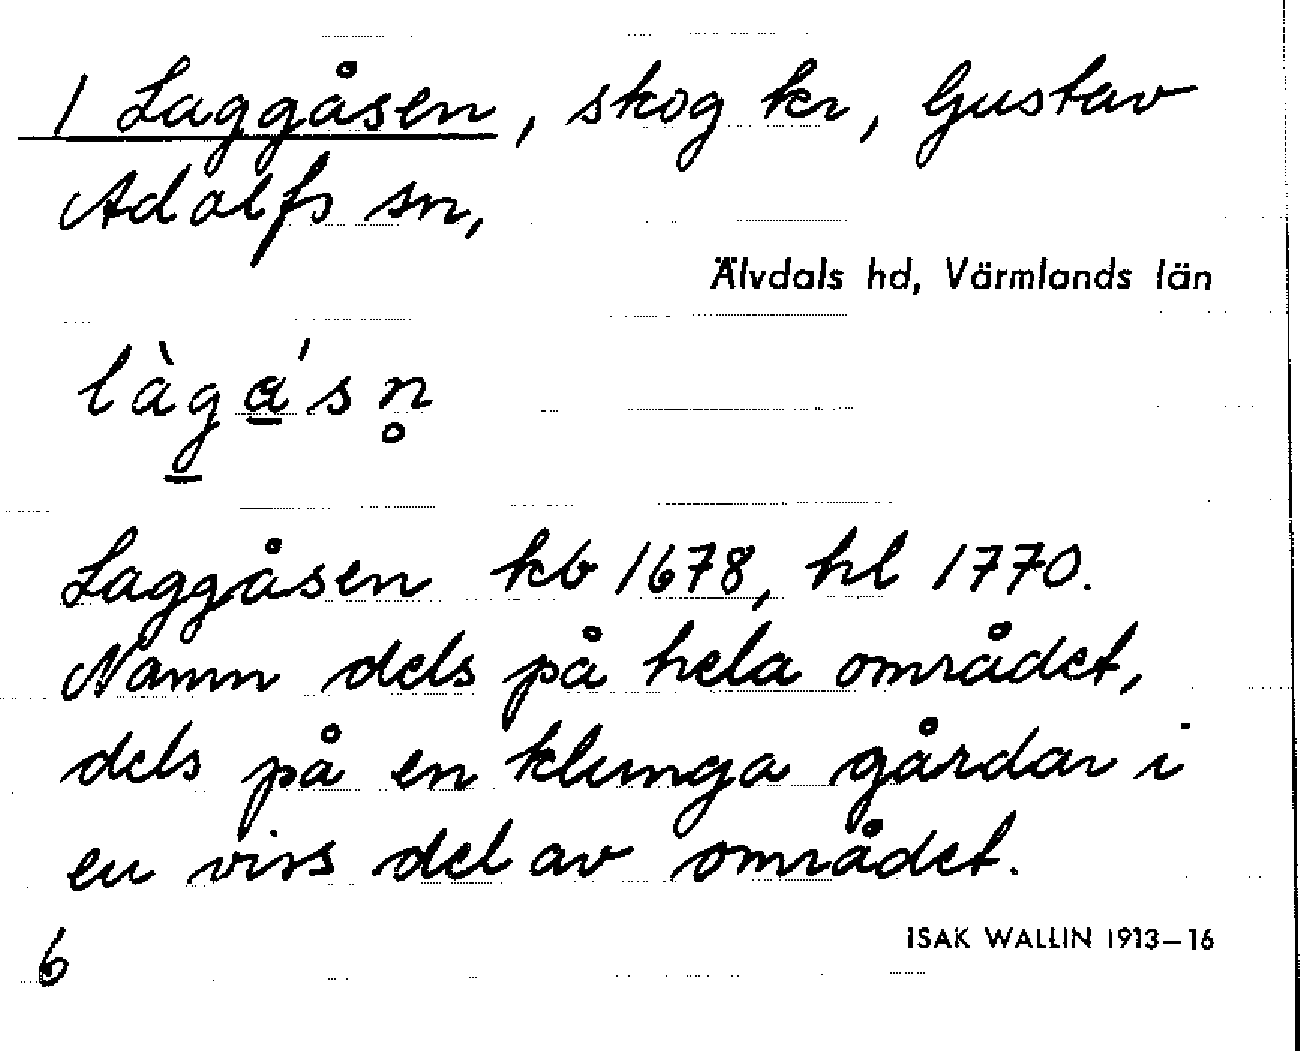 1 Laggåsen, skog kr, Gustav
Adolfs sn,
Älvdals hd, Värmlands län
làga̠'sn̥
Laggåsen kb 1678, hl 1770.
Namn dels på hela området,
dels på en klunga gårdar i
en viss del av området.
6
ISAK WALLIN 1913–16